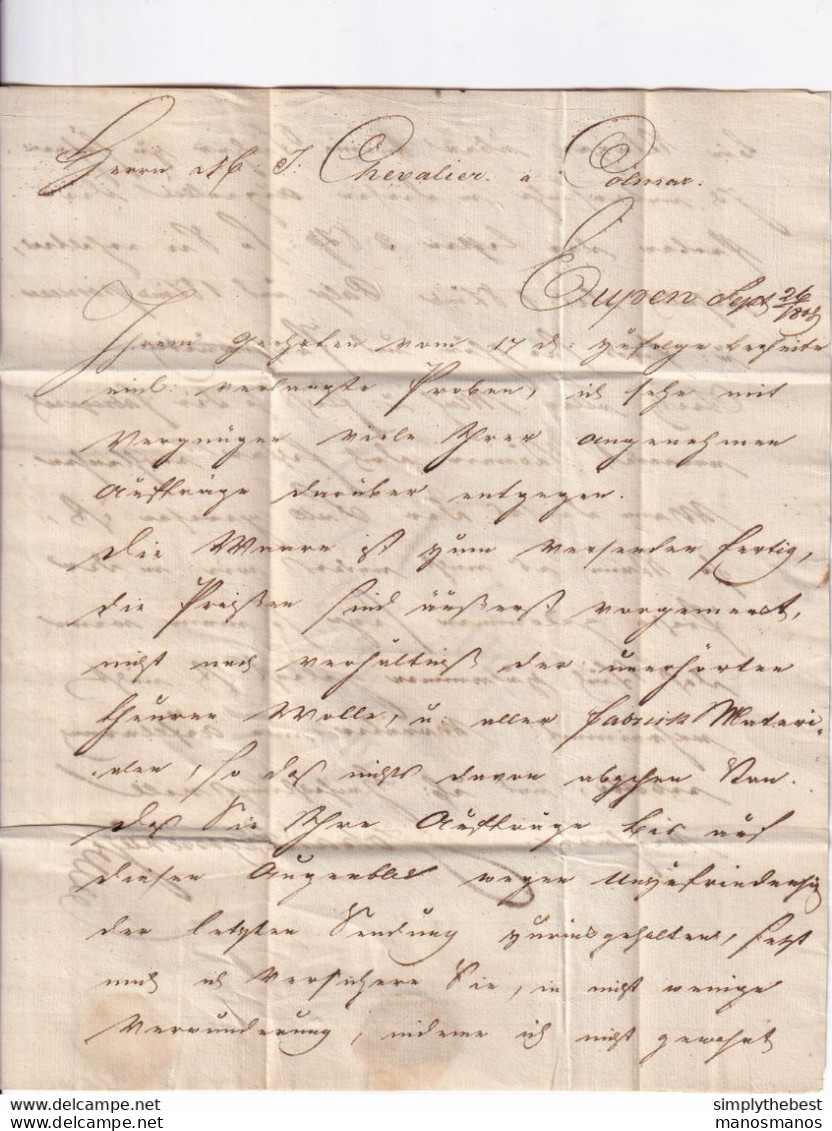 Herrn J. Chevalier. a Colmar.
Eupen Sept 26
Ihrem Geehrten vom 17 d: zufolge
einl: verlangte Proben, ich sehe mit
Vergnügen viele Ihrer angenehmen
Aufträge darüber entgegen.
Die Waare ist zum versenden fertig,
die Preißen sind äußerst
nicht nach verhältniß der unerhörten
theuren Wolle, u: aller fabrick Materi-
alien, so daß nichts davon abgehen kan.
Daß Sie Ihre Aufträge bis auf
diesen Augenblick wegen Unzufriedenheit
der letzten Sendung zurückgehalten, setzt
mich ich versichere Sie, in nicht wenige
Verwunderung, indeme ich nicht gewohnt
simplythebest
manosmanos